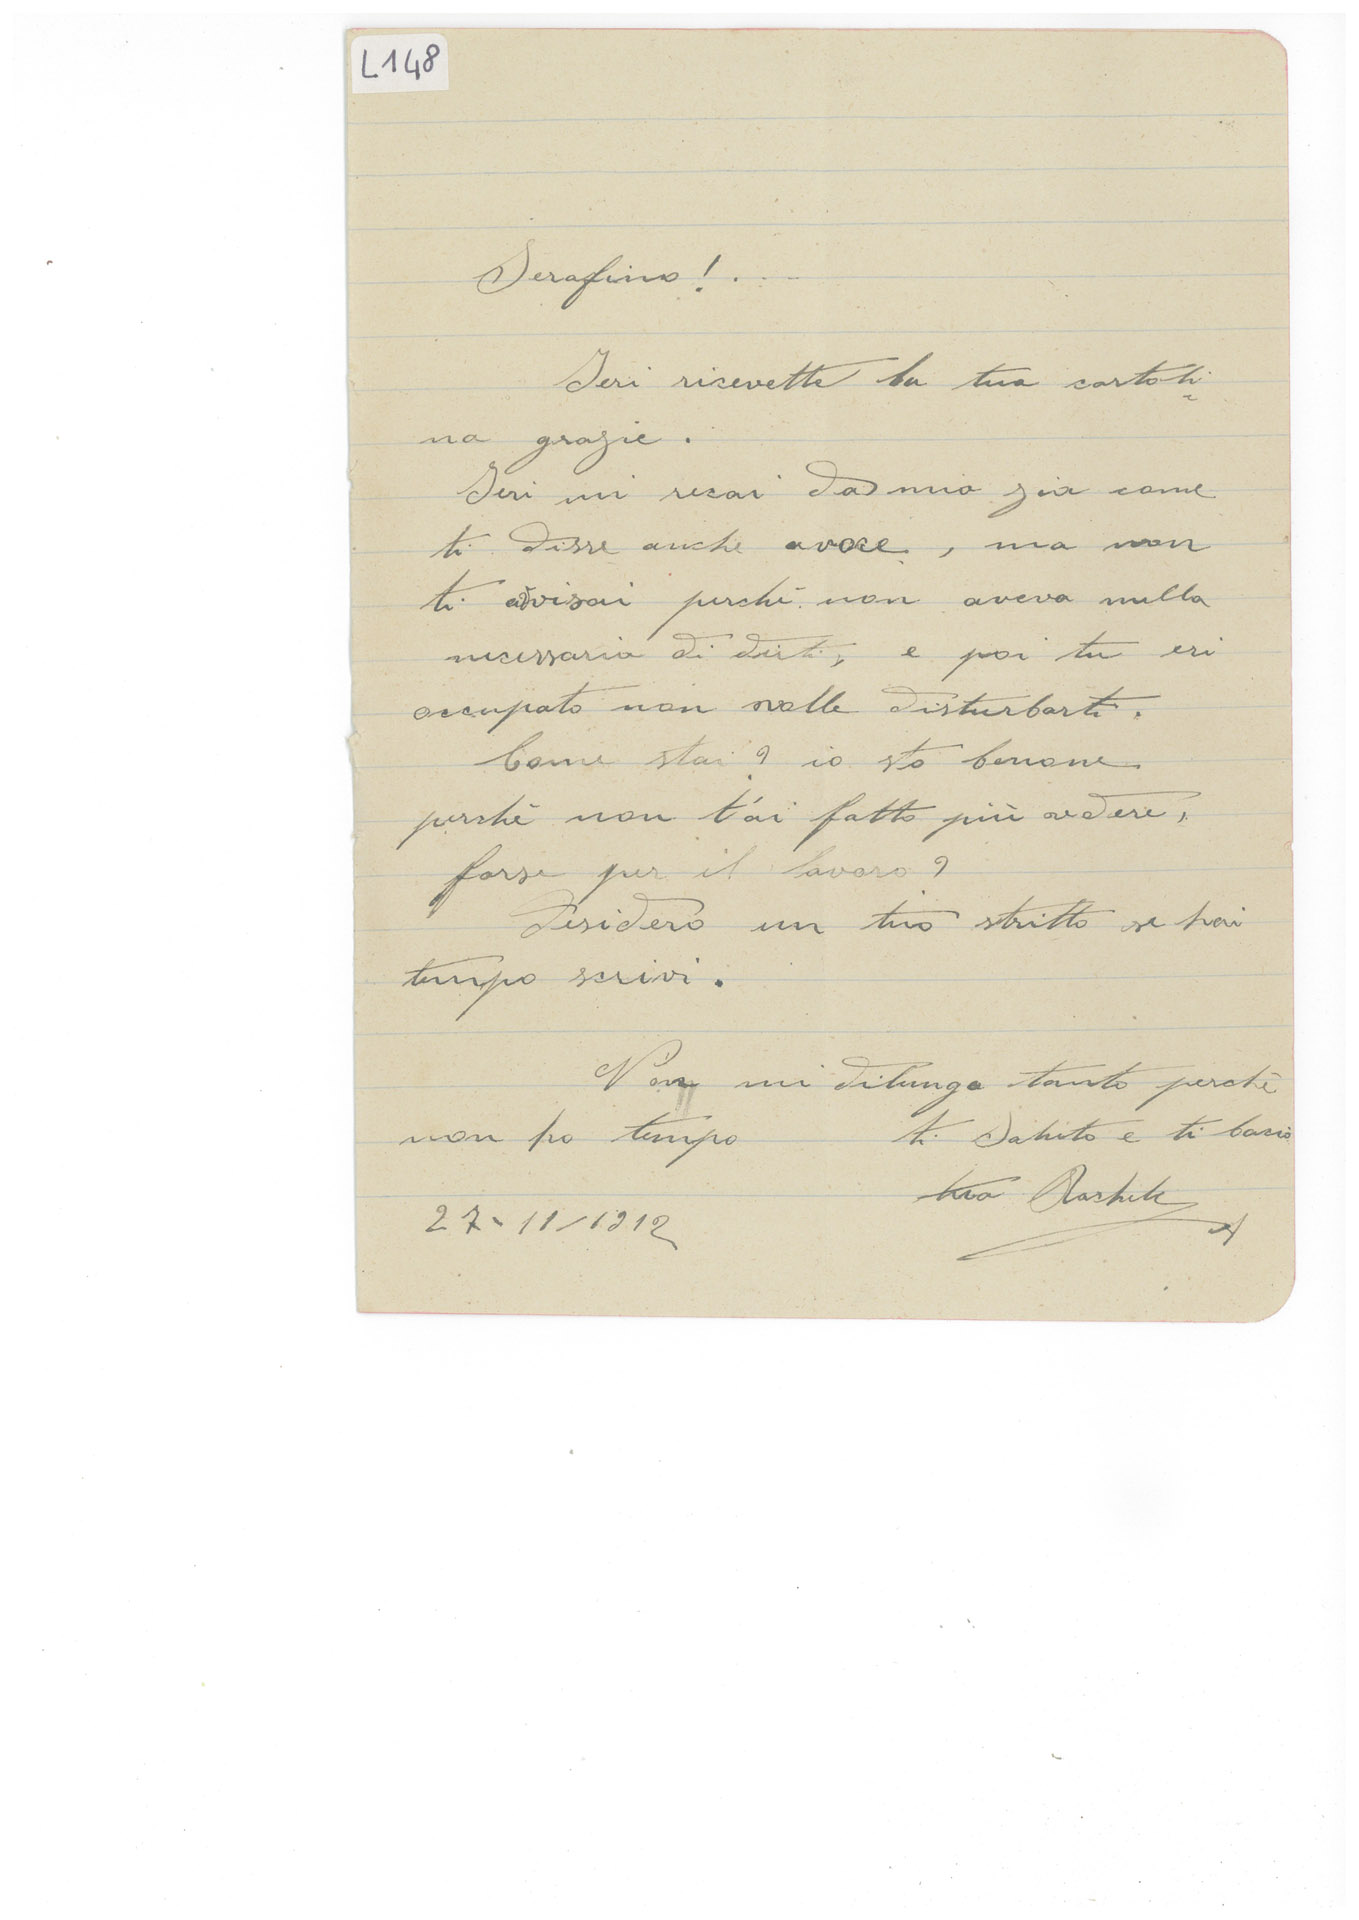 L148
Serafino! . - -
Ieri ricevette la tua cartoli-
na grazie.
Ieri mi recai da mia zia come
ti disse anche avoce, ma non
ti advisai perchè non aveva nulla
necessario di dirti, e poi tu eri
occupato non volle disturbarti.
Come stai? io sto benone
perchè non t'ai fatto più vedere,
forse per il lavoro?
Desidero un tuo scritto se hai
tempo scrivi.
Non mi dilungo tanto perchè
non ho tempo ti saluto e ti bacio
tua Rachele
27-11/1912